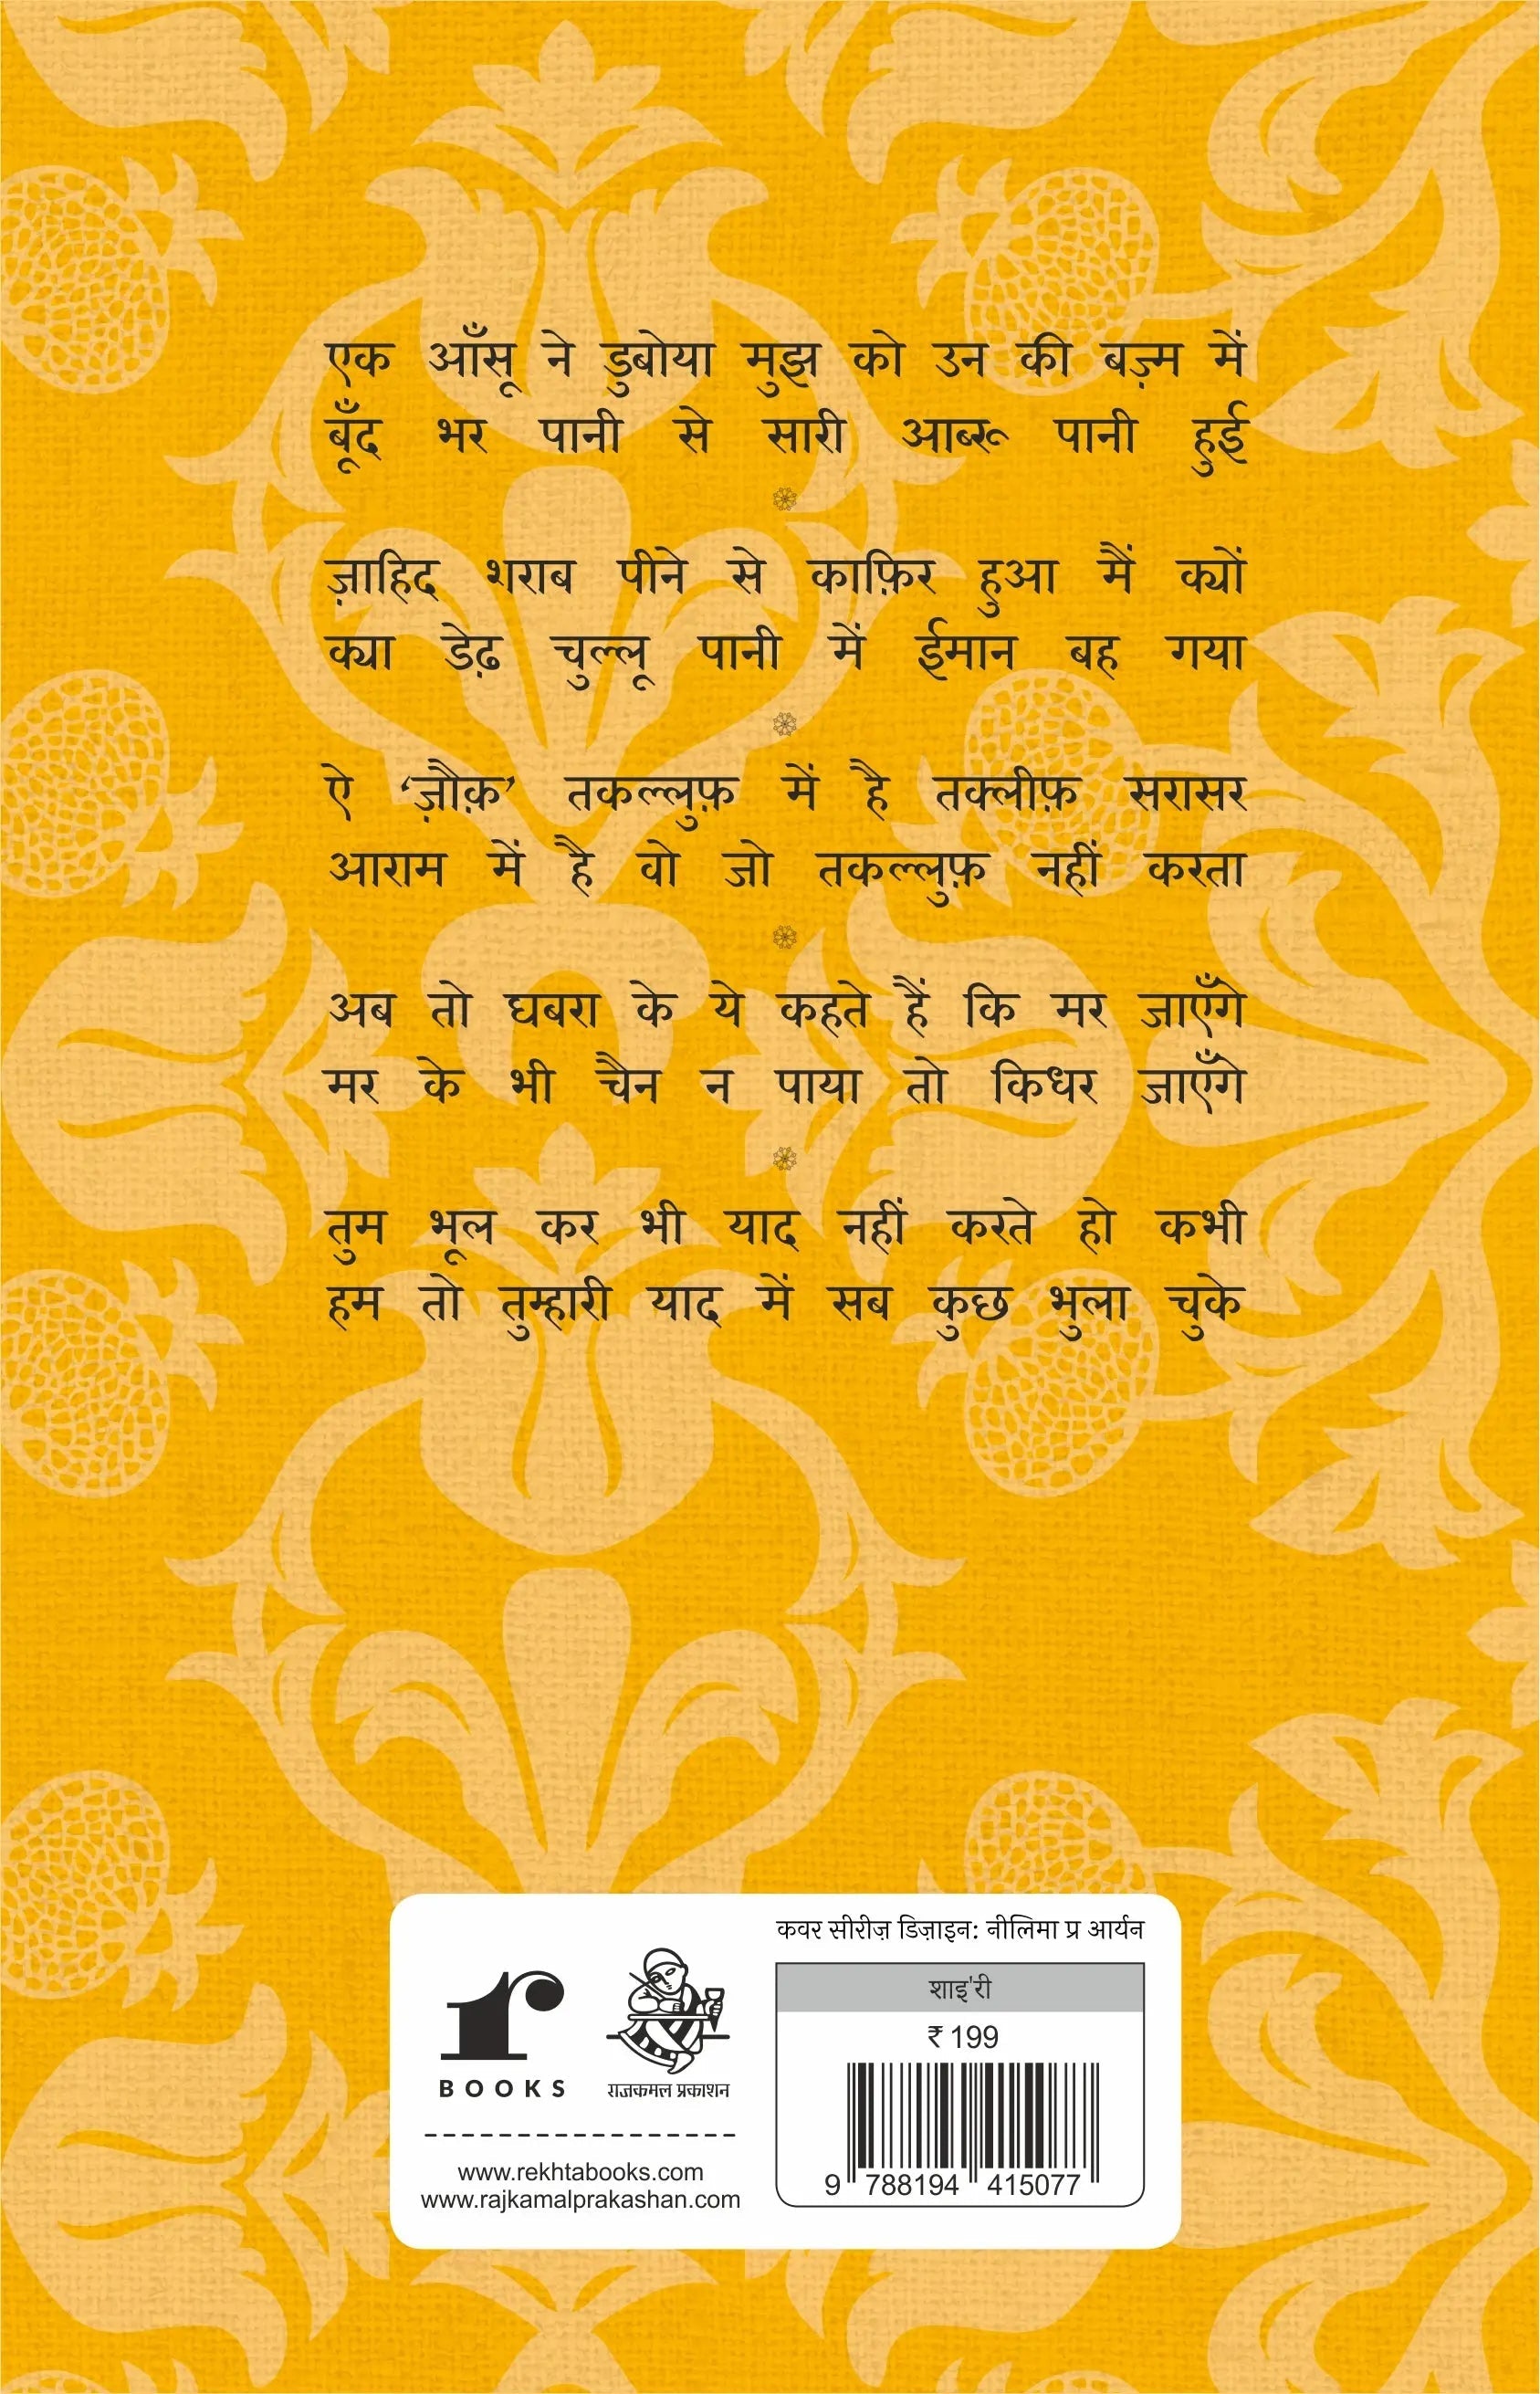 एक आँसू ने डुबोया मुझ को उन की बज़्म में
बूँद भर पानी से सारी आब्रू पानी हुई
ज़ाहिद शराब पीने से काफ़िर हुआ मैं क्यों
क्या डेढ़ चुल्लू पानी में ईमान बह गया
ऐ ‘ज़ौक़’ तकल्लुफ़ में है तक्लीफ़ सरासर
आराम में है वो जो तकल्लुफ़ नहीं करता
अब तो घबरा के ये कहते हैं कि मर जाएँगे
मर के भी चैन न पाया तो किधर जाएँगे
तुम भूल कर भी याद नहीं करते हो कभी
हम तो तुम्हारी याद में सब कुछ भुला चुके
r
BOOKS
राजकमल प्रकाशन
www.rekhtabooks.com
www.rajkamalprakashan.com
कवर सीरीज़ डिज़ाइन: नीलिमा प्र आर्यन
शाइ'री
₹ 199
9 788194 415077